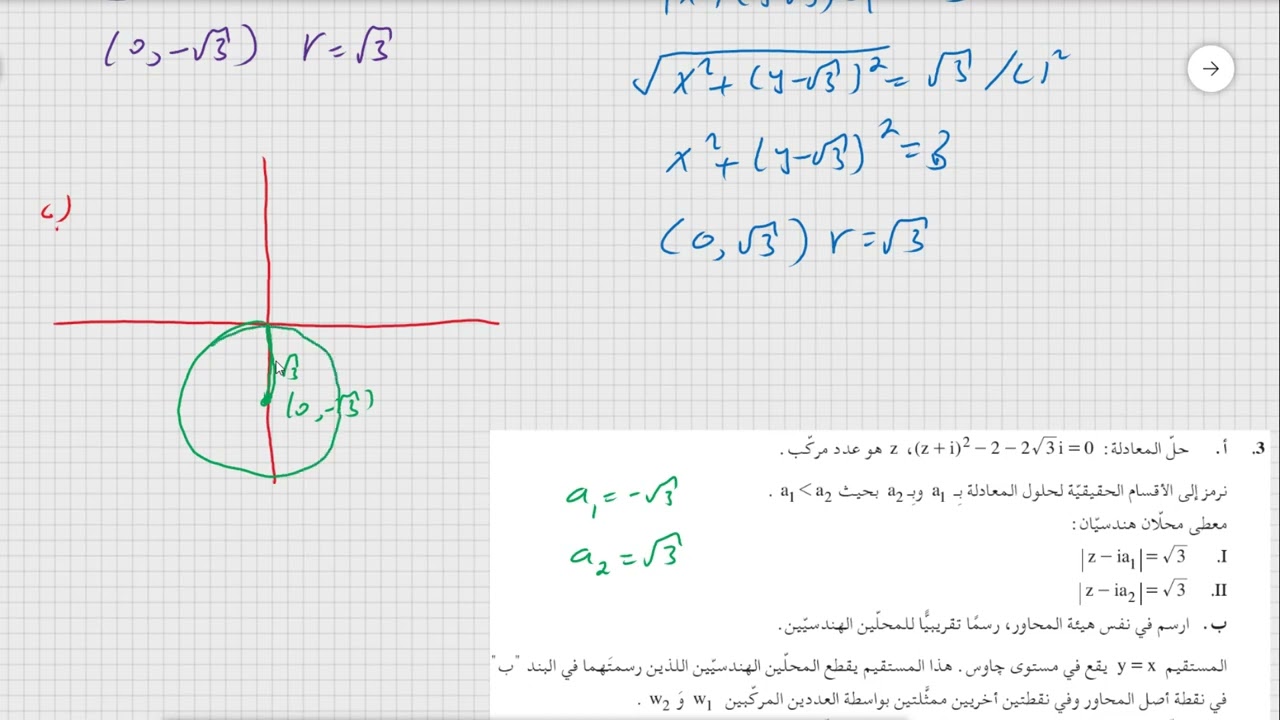 (0, -√3) r = √3
√(x² + (y-√3)²) = √3 /( )²
x² + (y-√3)² = 3
(0, √3) r = √3
√3
(0, -√3)
3. أ. حلّ المعادلة: (z + i)² − 2 − 2√3 i = 0، z هو عدد مركّب.
نرمز إلى الأقسام الحقيقيّة لحلول المعادلة بِـ a₁ وبِـ a₂ بحيث a₁ < a₂.
معطى محلّان هندسيّان:
I. |z − ia₁| = √3
II. |z − ia₂| = √3
ب. ارسم في نفس هيئة المحاور، رسمًا تقريبيًّا للمحلّين الهندسيّين.
المستقيم y = x يقع في مستوى چاوس. هذا المستقيم يقطع المحلّين الهندسيّين اللذين رسمتَهما في البند "ب"
في نقطة أصل المحاور وفي نقطتين أخريين ممثَّلتين بواسطة العددين المركّبين w₁ وَ w₂.
a₁ = -√3
a₂ = √3